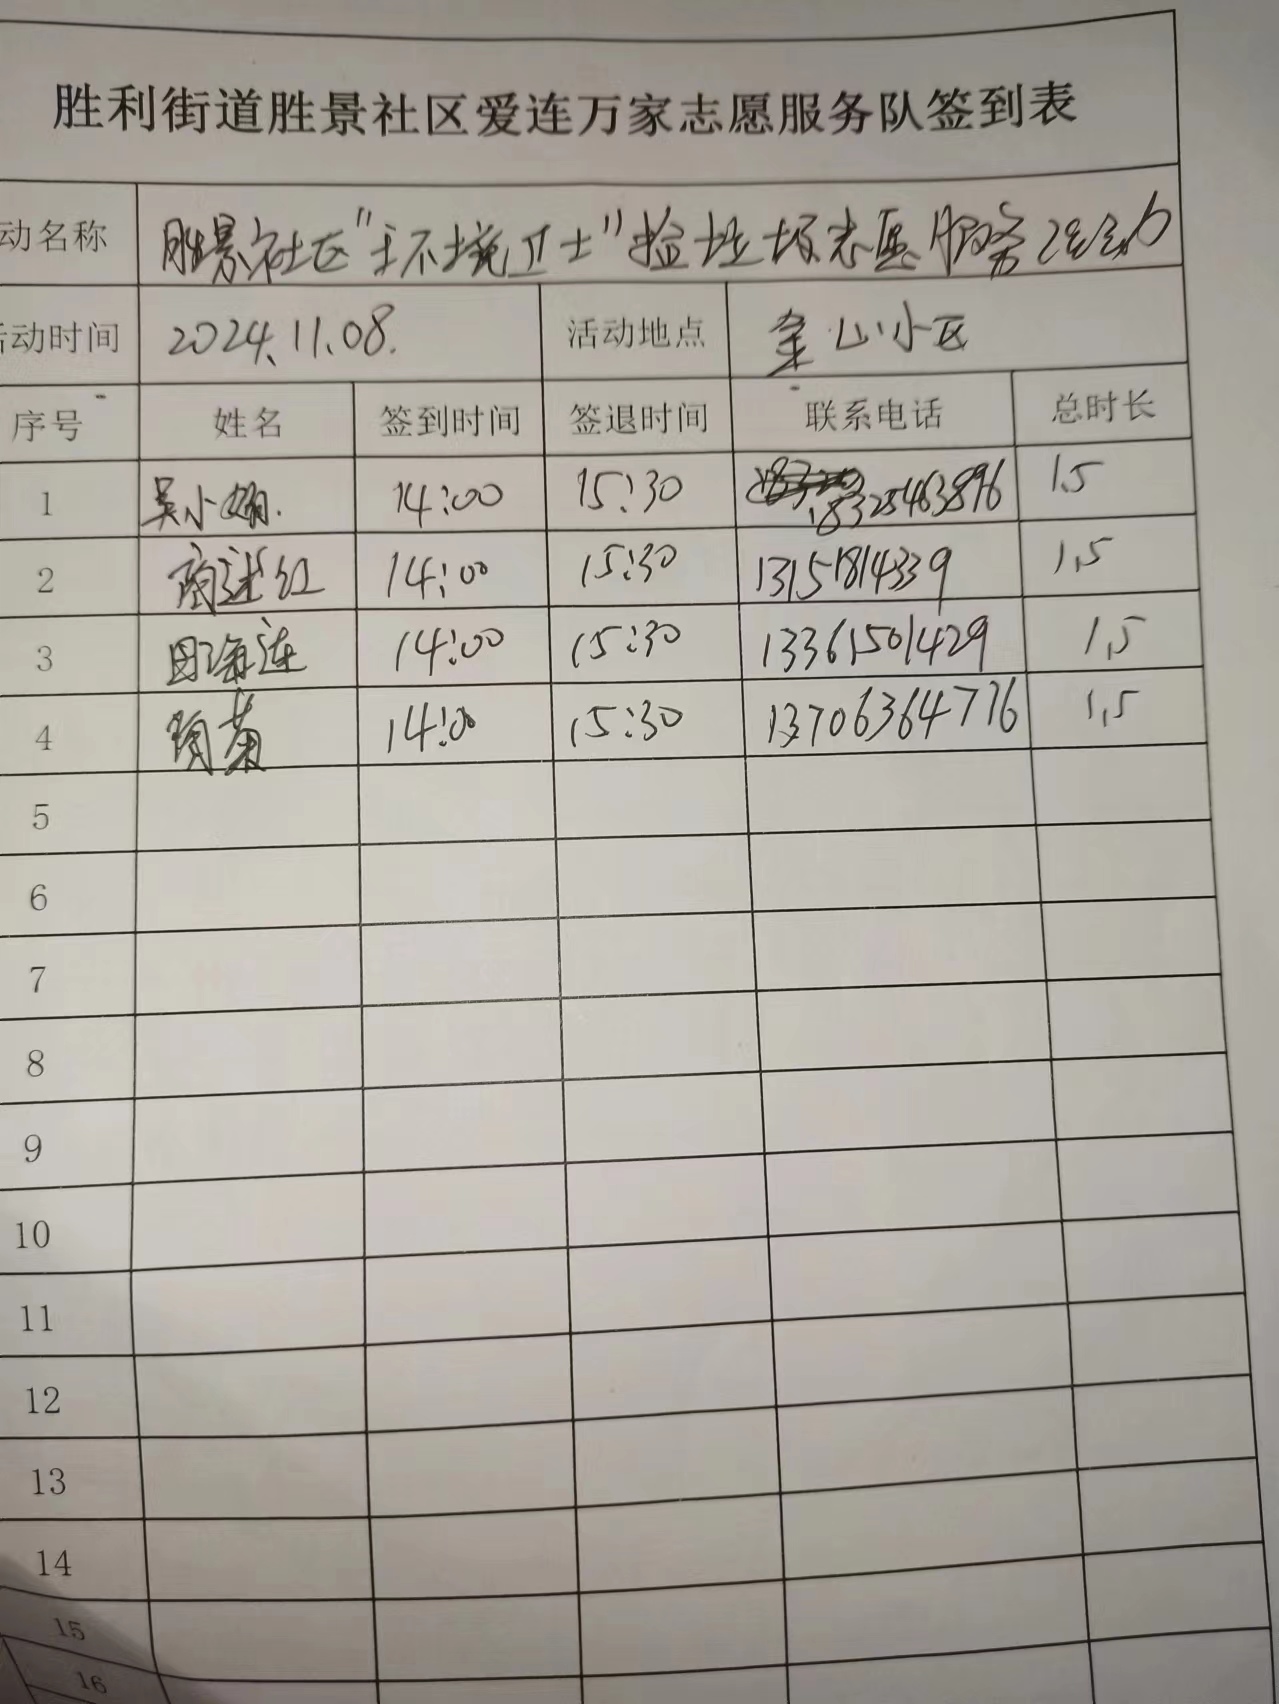 胜利街道胜景社区爱连万家志愿服务队签到表
动名称 胜景社区"环境卫士"捡垃圾志愿服务活动
活动时间 2024.11.08. 活动地点 金山小区
序号 姓名 签到时间 签退时间 联系电话 总时长
1 吴小娟. 14:00 15:30 18325463896 1.5
2 红 14:00 15:30 13151814339 1.5
3 田海莲 14:00 15:30 13361501429 1.5
4 14:00 15:30 13706364776 1.5
5
6
7
8
9
10
11
12
13
14
15
16